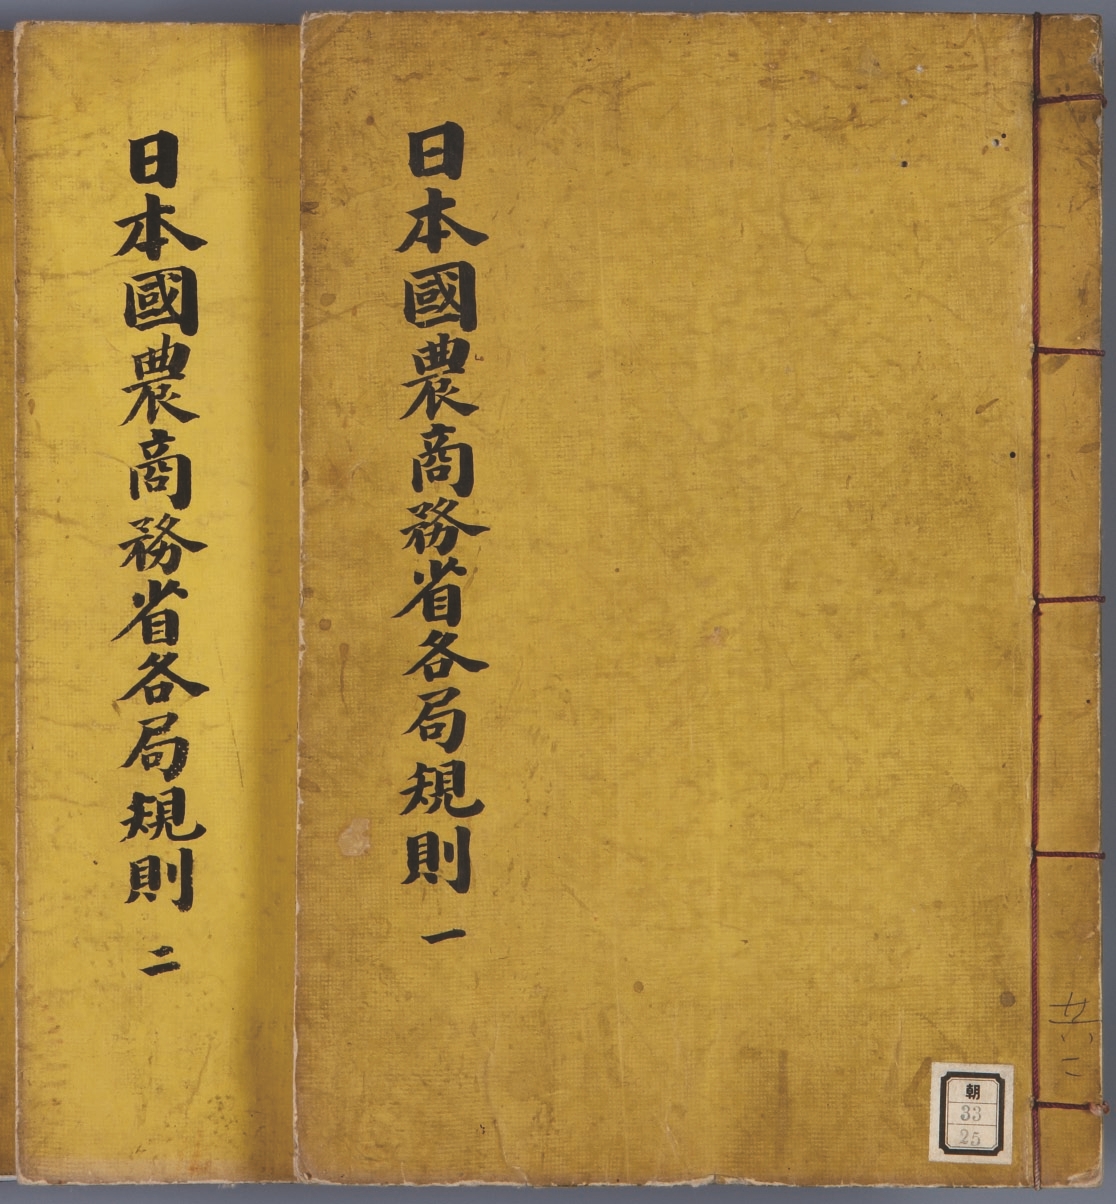 日本國農商務省各局規則 一
共二
朝
33
25
日本國農商務省各局規則 二